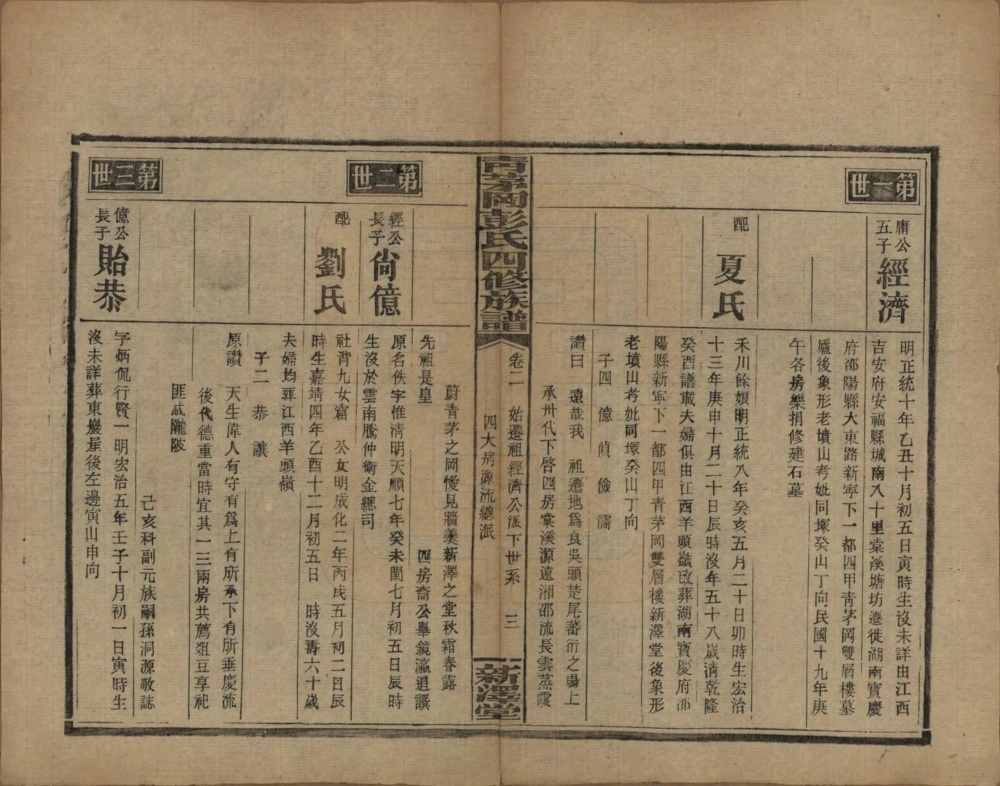 第一世
庸公
五子
經濟
明正統十年乙丑十月初五日寅時生沒未詳由江西
吉安府安福縣城南八十里棠溪塘坊遷徙湖南寶慶
府邵陽縣大東路新寧下一都四甲青茅岡雙層樓墓
廬後象形老墳山考妣同塚癸山丁向民國十九年庚
午各房樂捐修建石墓
配
夏氏
禾川餘娘明正統八年癸亥五月二十日卯時生宏治
十三年庚申十月二十日辰時沒年五十八歲清乾隆
癸酉譜載夫婦俱由江西羊頭嶺改葬湖南寶慶府邵
陽縣新寧下一都四甲青茅岡雙層樓新澤堂後象形
老墳山考妣同塚癸山丁向
子四 億 偵 儉 濡
讚曰 遠哉我 祖遷地為良吳頭楚尾蕃衍之塲上
承卅代下啓四房棠溪源遠湘邵流長雲蒸霞
青茅岡彭氏四修族譜
卷二 始遷祖經濟公派下世系 三
四大房源流總派
新澤堂
蔚青茅之岡慢見牆羹新澤之堂秋霜春露
先祖是皇
四房裔公舉鏡瀛追譔
第二世
經公
長子
尙億
原名佚字惟清明天順七年癸未閏七月初五日辰時
生沒於雲南騰仲衛金總司
配
劉氏
社背九女富 公女明成化二年丙戍五月初二日辰
時生嘉靖四年乙酉十二月初五日 時沒壽六十歲
夫婦均葬江西羊頭嶺
子二 恭 讓
原讚 天生偉人有守有為上有所承下有所垂慶流
後代德重當時宜其一三兩房共薦俎豆享祀
匪忒隴陂
己亥科副元族嗣孫洞源敬誌
第三世
億公
長子
貽恭
字炳侃行賢一明宏治五年壬子十月初一日寅時生
沒未詳葬東巖屋後左邊寅山申向